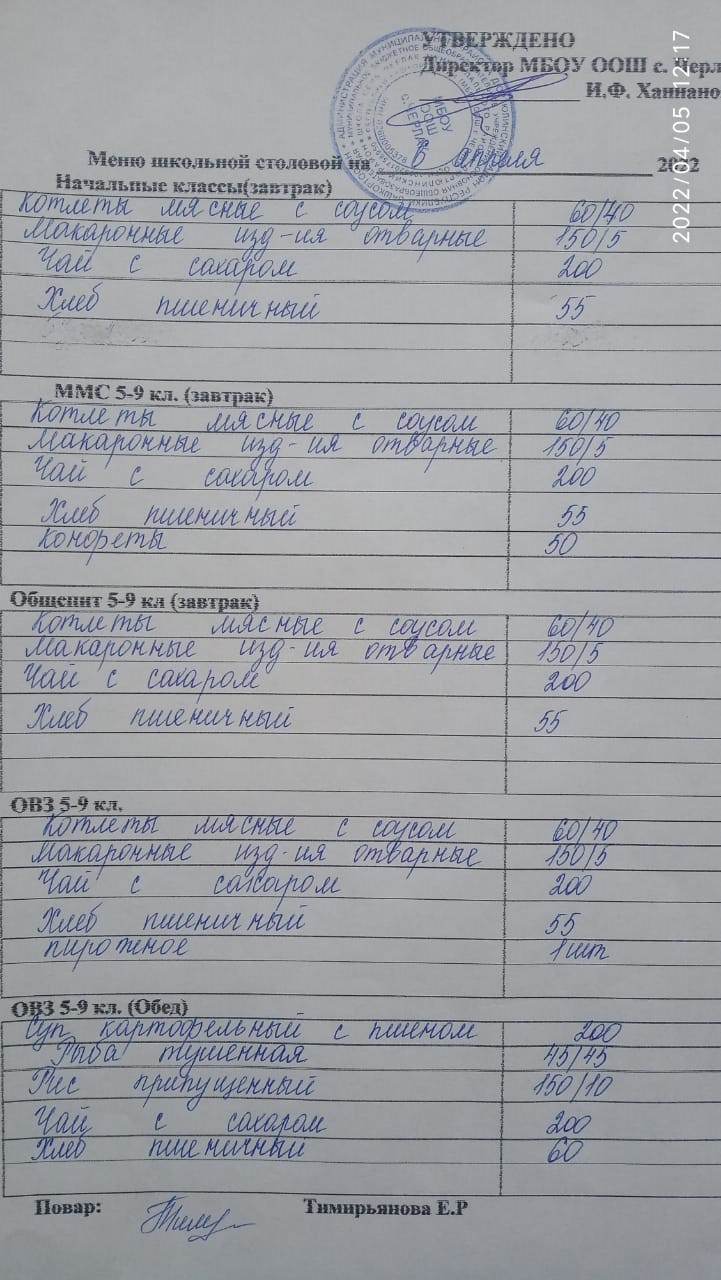 УТВЕРЖДЕНО
Директор МБОУ ООШ с. Черл
И.Ф. Ханнано
МБОУ
ООШ
с.ЧЕРЛАК
Меню школьной столовой на 6 апреля 2022
2022/04/05 12:17
Начальные классы(завтрак)
Котлеты мясные с соусом 60/40
Макаронные изд-ия отварные 150/5
Чай с сахаром 200
Хлеб пшеничный 55
ММС 5-9 кл. (завтрак)
Котлеты мясные с соусом 60/40
Макаронные изд-ия отварные 150/5
Чай с сахаром 200
Хлеб пшеничный 55
конфеты 50
Общепит 5-9 кл (завтрак)
Котлеты мясные с соусом 60/40
Макаронные изд-ия отварные 150/5
Чай с сахаром 200
Хлеб пшеничный 55
ОВЗ 5-9 кл.
Котлеты мясные с соусом 60/40
Макаронные изд-ия отварные 150/5
Чай с сахаром 200
Хлеб пшеничный 55
пирожное 1 шт
ОВЗ 5-9 кл. (Обед)
Суп картофельный с пшеном 200
Рыба тушенная 45/45
Рис припущенный 150/10
Чай с сахаром 200
Хлеб пшеничный 60
Повар: Тимирьянова Е.Р